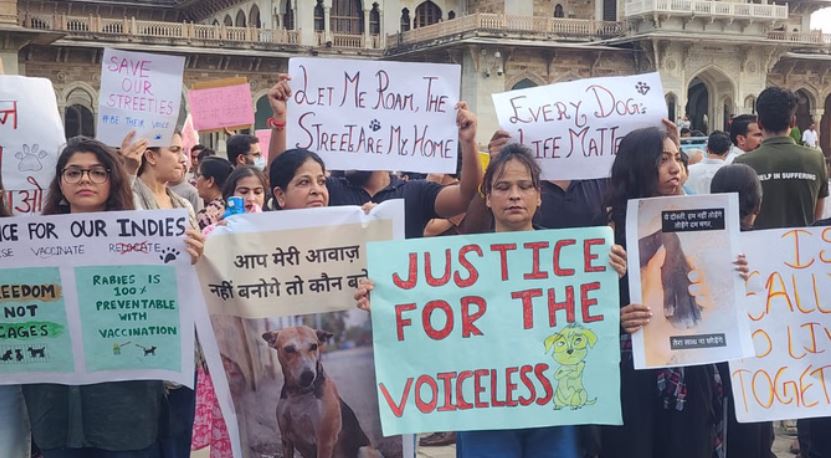 SAVE
OUR
STREETIES
#BE THEIR VOICE
LET ME ROAM, THE
STREET ARE MY HOME
EVERY DOG'S
LIFE MATTE
HELP IN SUFFERING
CE FOR OUR INDIES
SE VACCINATE RELOCATE
EEDOM
NOT
CAGES
RABIES IS
100%
PREVENTABLE
WITH
VACCINATION
आप मेरी आवाज़
नहीं बनोगे तो कौन ब
JUSTICE
FOR THE
VOICELESS
ये दोस्ती, हम नहीं तोड़ेंगे
तोड़ेंगे दम मगर,
तेरा साथ ना छोड़ेंगे
IS
CALL
O LIV
TOGET